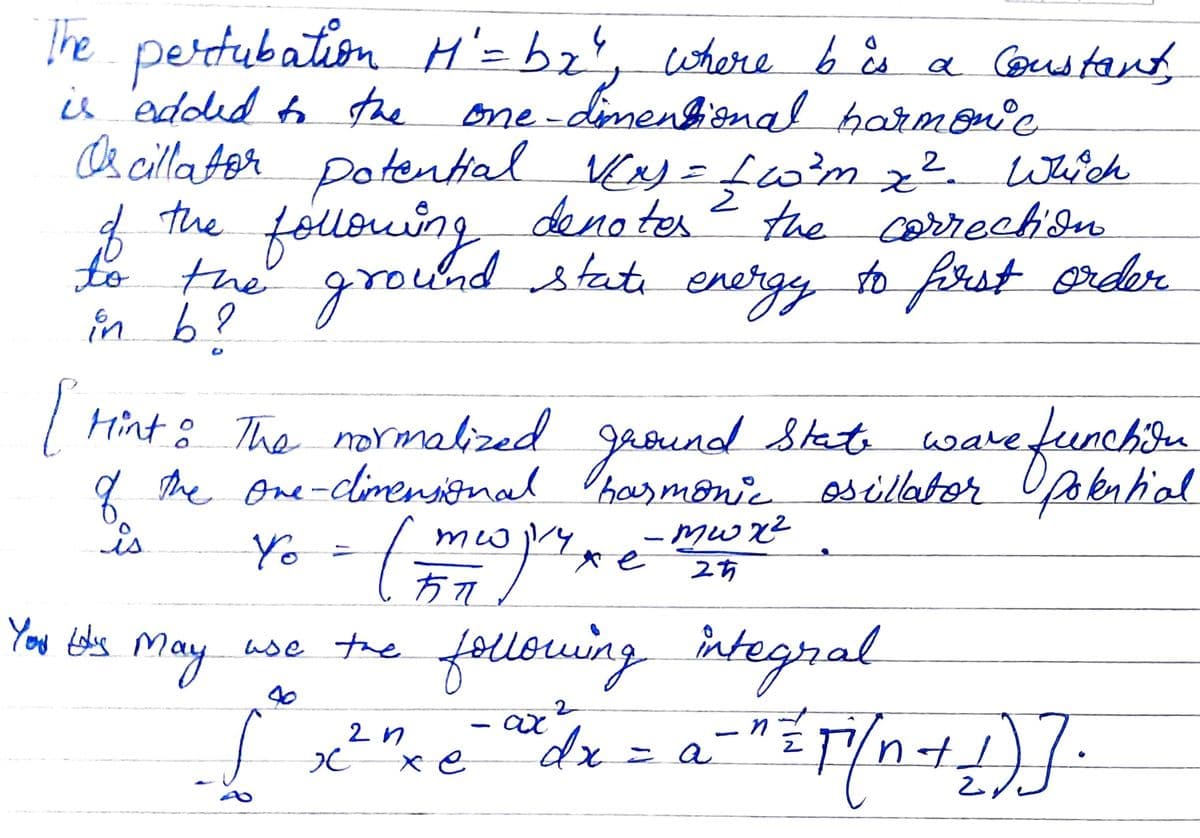 The pertubation H' = bx⁴, where b is a Constant,
is added to the one-dimensional harmonic
Oscillator potential V(x) = 1/2 ω²m x². Which
of the following denotes the correction
to the ground state energy to first order
in b?
[Hint: The normalized ground State wavefunction
of the one-dimensional harmonic osillator potential
is ψ₀ = (mω/ħπ)^1/4 × e^-mωx²/2ħ.
You may use the following integral
∫_-∞^∞ x^2n × e^-ax² dx = a^-n-1/2 Γ(n+1/2)].